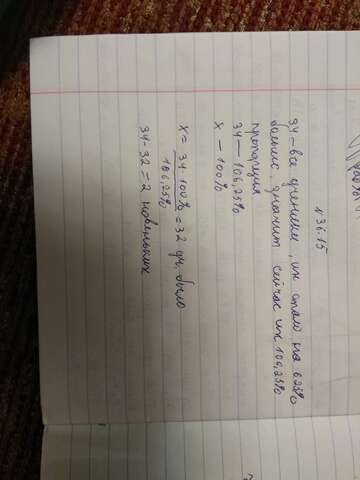 №36.15
34 – все ученики, их стало на 6,25%
больше, значит сейчас их 106,25%
пропорция
34 — 106,25%
x — 100%
x = 34·100% / 106,25% = 32 уч. было
34-32=2 новеньких